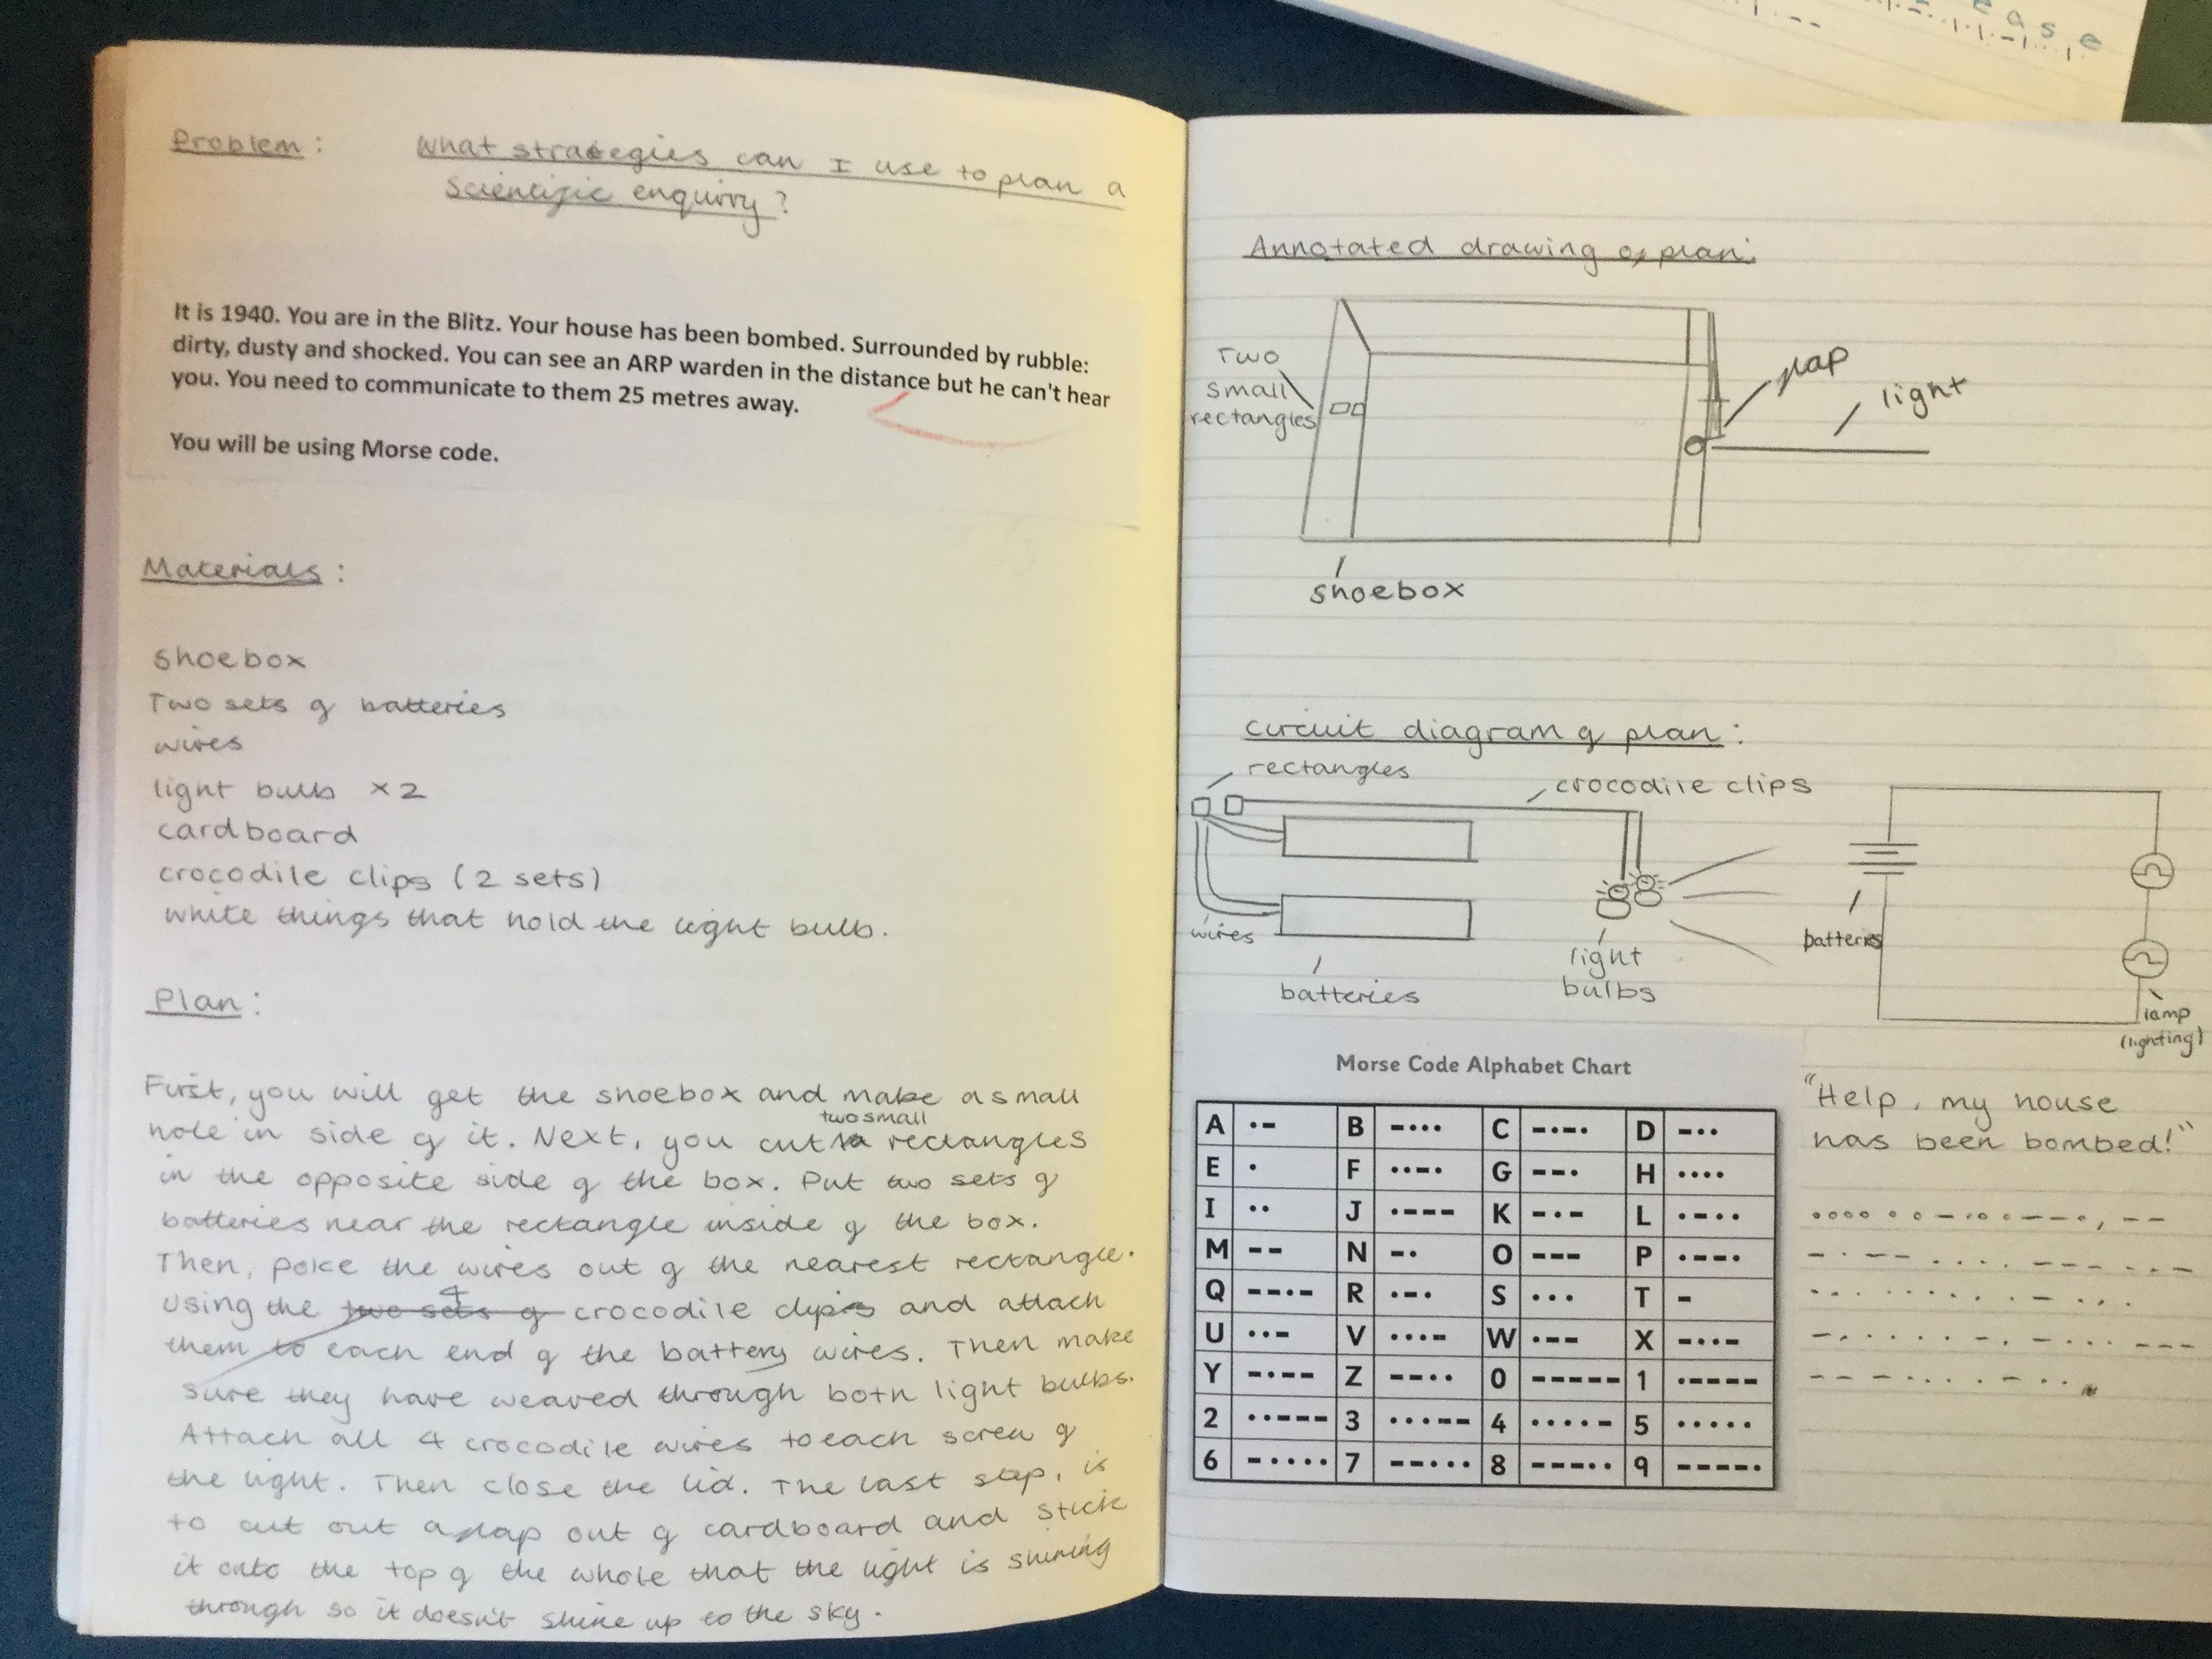 Problem : What strategies can I use to plan a
scientific enquiry?
It is 1940. You are in the Blitz. Your house has been bombed. Surrounded by rubble:
dirty, dusty and shocked. You can see an ARP warden in the distance but he can't hear
you. You need to communicate to them 25 metres away.
You will be using Morse code.
Materials :
shoebox
Two sets of batteries
wires
light bulb x2
cardboard
crocodile clips (2 sets)
white things that hold the light bulb.
Plan :
First, you will get the shoebox and make a small
hole in side of it. Next, you cut two small rectangles
in the opposite side of the box. Put two sets of
batteries near the rectangle inside of the box.
Then, poke the wires out of the nearest rectangle.
Using the 4 crocodile clips and attach
them to each end of the battery wires. Then make
sure they have weaved through both light bulbs.
Attach all 4 crocodile wires to each screw of
the light. Then close the lid. The last step, is
to cut out a flap out of cardboard and stick
it onto the top of the whole that the light is shining
through so it doesn't shine up to the sky.
ease
Annotated drawing of plan:
Two
small
rectangles
flap
light
shoebox
circuit diagram of plan :
rectangles
crocodile clips
wires
batteries
light
bulbs
batteries
lamp
(lighting)
Morse Code Alphabet Chart
A •– B –••• C –•–• D –••
E • F ••–• G ––• H ••••
I •• J •––– K –•– L •–••
M –– N –• O ––– P •––•
Q ––•– R •–• S ••• T –
U ••– V •••– W •–– X –••–
Y –•–– Z ––•• 0 ––––– 1 •––––
2 ••––– 3 •••–– 4 ••••– 5 •••••
6 –•••• 7 ––••• 8 –––•• 9 ––––•
"Help, my house
has been bombed!"